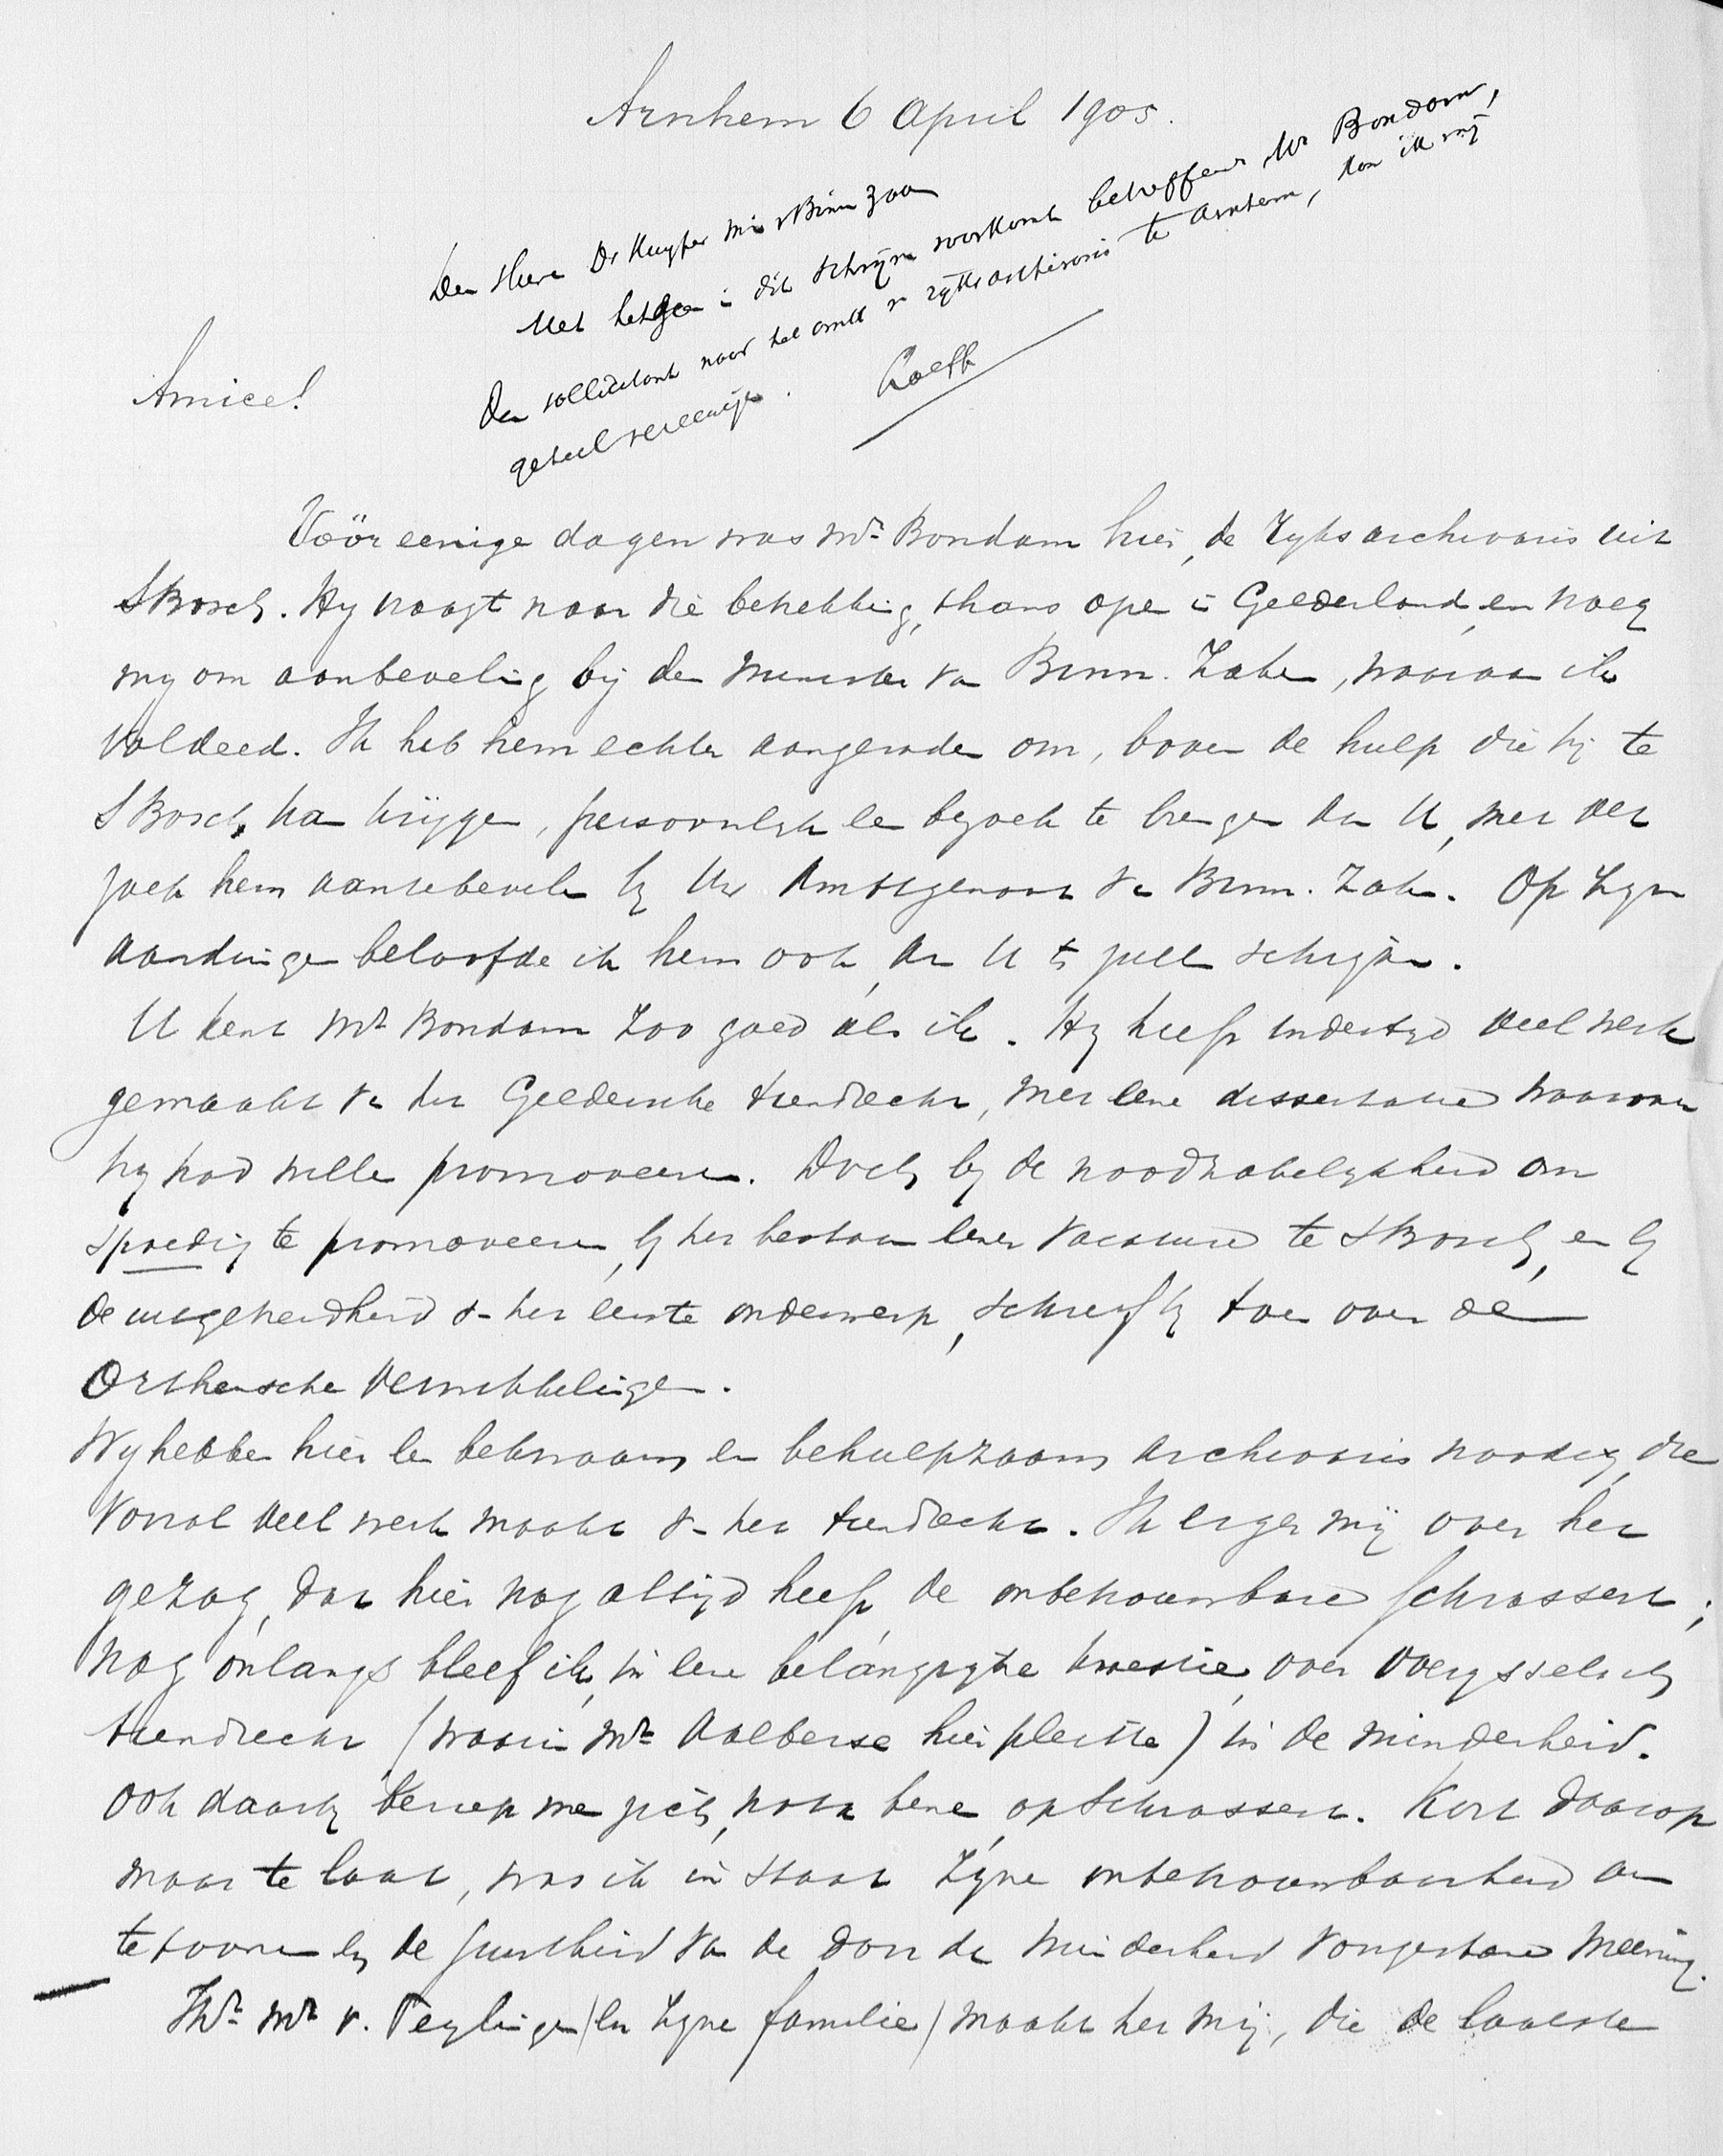 Arnhem 6 April 1905.
Den Heere Dr Kuyper Min v Binn Zaa
Met hetgeen in dit schrijven voorkomt betreffende Mr Bondam,
den sollicitant naar het ambt v rijksarchivaris te Arnhem, kan ik mij
geheel vereenigen. Loeff
Amice!
Vóór eenige dagen was Mr Bondam hier, de Rijksarchivaris uit
's Bosch. Hij vraagt naar die betrekking, thans open in Gelderland, en vroeg
mij om aanbeveling bij den Minister van Binn. Zaken, waaraan ik
voldeed. Ik heb hem echter aangeraden om, boven de hulp die hij te
's Bosch kan krijgen, persoonlijk een bezoek te brengen aan U, met ver
zoek hem aantebevelen bij Uw Ambtgenoot van Binn. Zaken. Op zijn
aandringen beloofde ik hem ook, aan U te zullen schrijven.
U kent Mr Bondam zoo goed als ik. Hij heeft indertijd veel werk
gemaakt van het Geldersche tiendrecht, met eene dissertatie waarover
hij had willen promoveeren. Doch bij de noodzakelijkheid om
spoedig te promoveeren, bij het bestaan eener vacature te 's Bosch, en bij
de uitgebreidheid van het eerste onderwerp, schreef hij toen over de
Orthensche verwikkelingen.
Wij hebben hier een bekwaam en behulpzaam archivaris noodig, die
vooral veel werk maakt van het tiendrecht. Ik erger mij over het
gezag, dat hier nog altijd heeft de onbetrouwbare Schrassert;
nog onlangs bleef ik, in eene belangrijke kwestie, over Overijsselsch
tiendrecht (waarin Mr Aalberse hier pleitte) in de minderheid.
Ook daarbij beriep men zich, nota bene, op Schrassert. Kort daarop
maar te laat, was ik in staat zijne onbetrouwbaarheid aan
te toonen bij de juistheid van de door de minderheid voorgestane meening.
Jhr Mr v. Teylingen (en zijne familie) maakt het mij, die de laatste